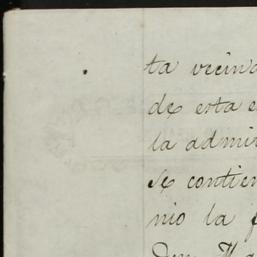 ta vecin
de esta e
la admi
se contien
nio la f
Don Ma